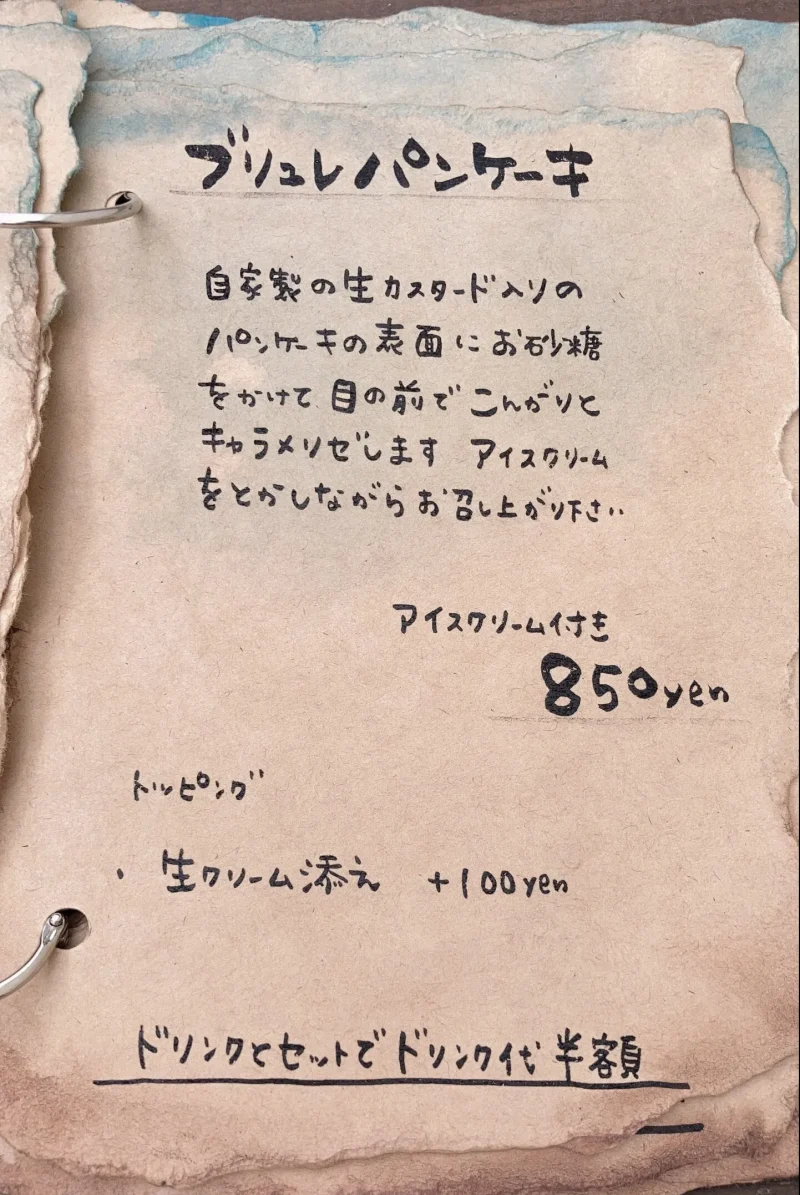 ブリュレパンケーキ
自家製の生カスタード入りの
パンケーキの表面にお砂糖
をかけて目の前でこんがりと
キャラメリゼします アイスクリーム
をとかしながらお召し上がり下さい
アイスクリーム付き
850yen
トッピング
・ 生クリーム添え +100yen
ドリンクとセットでドリンク代半額